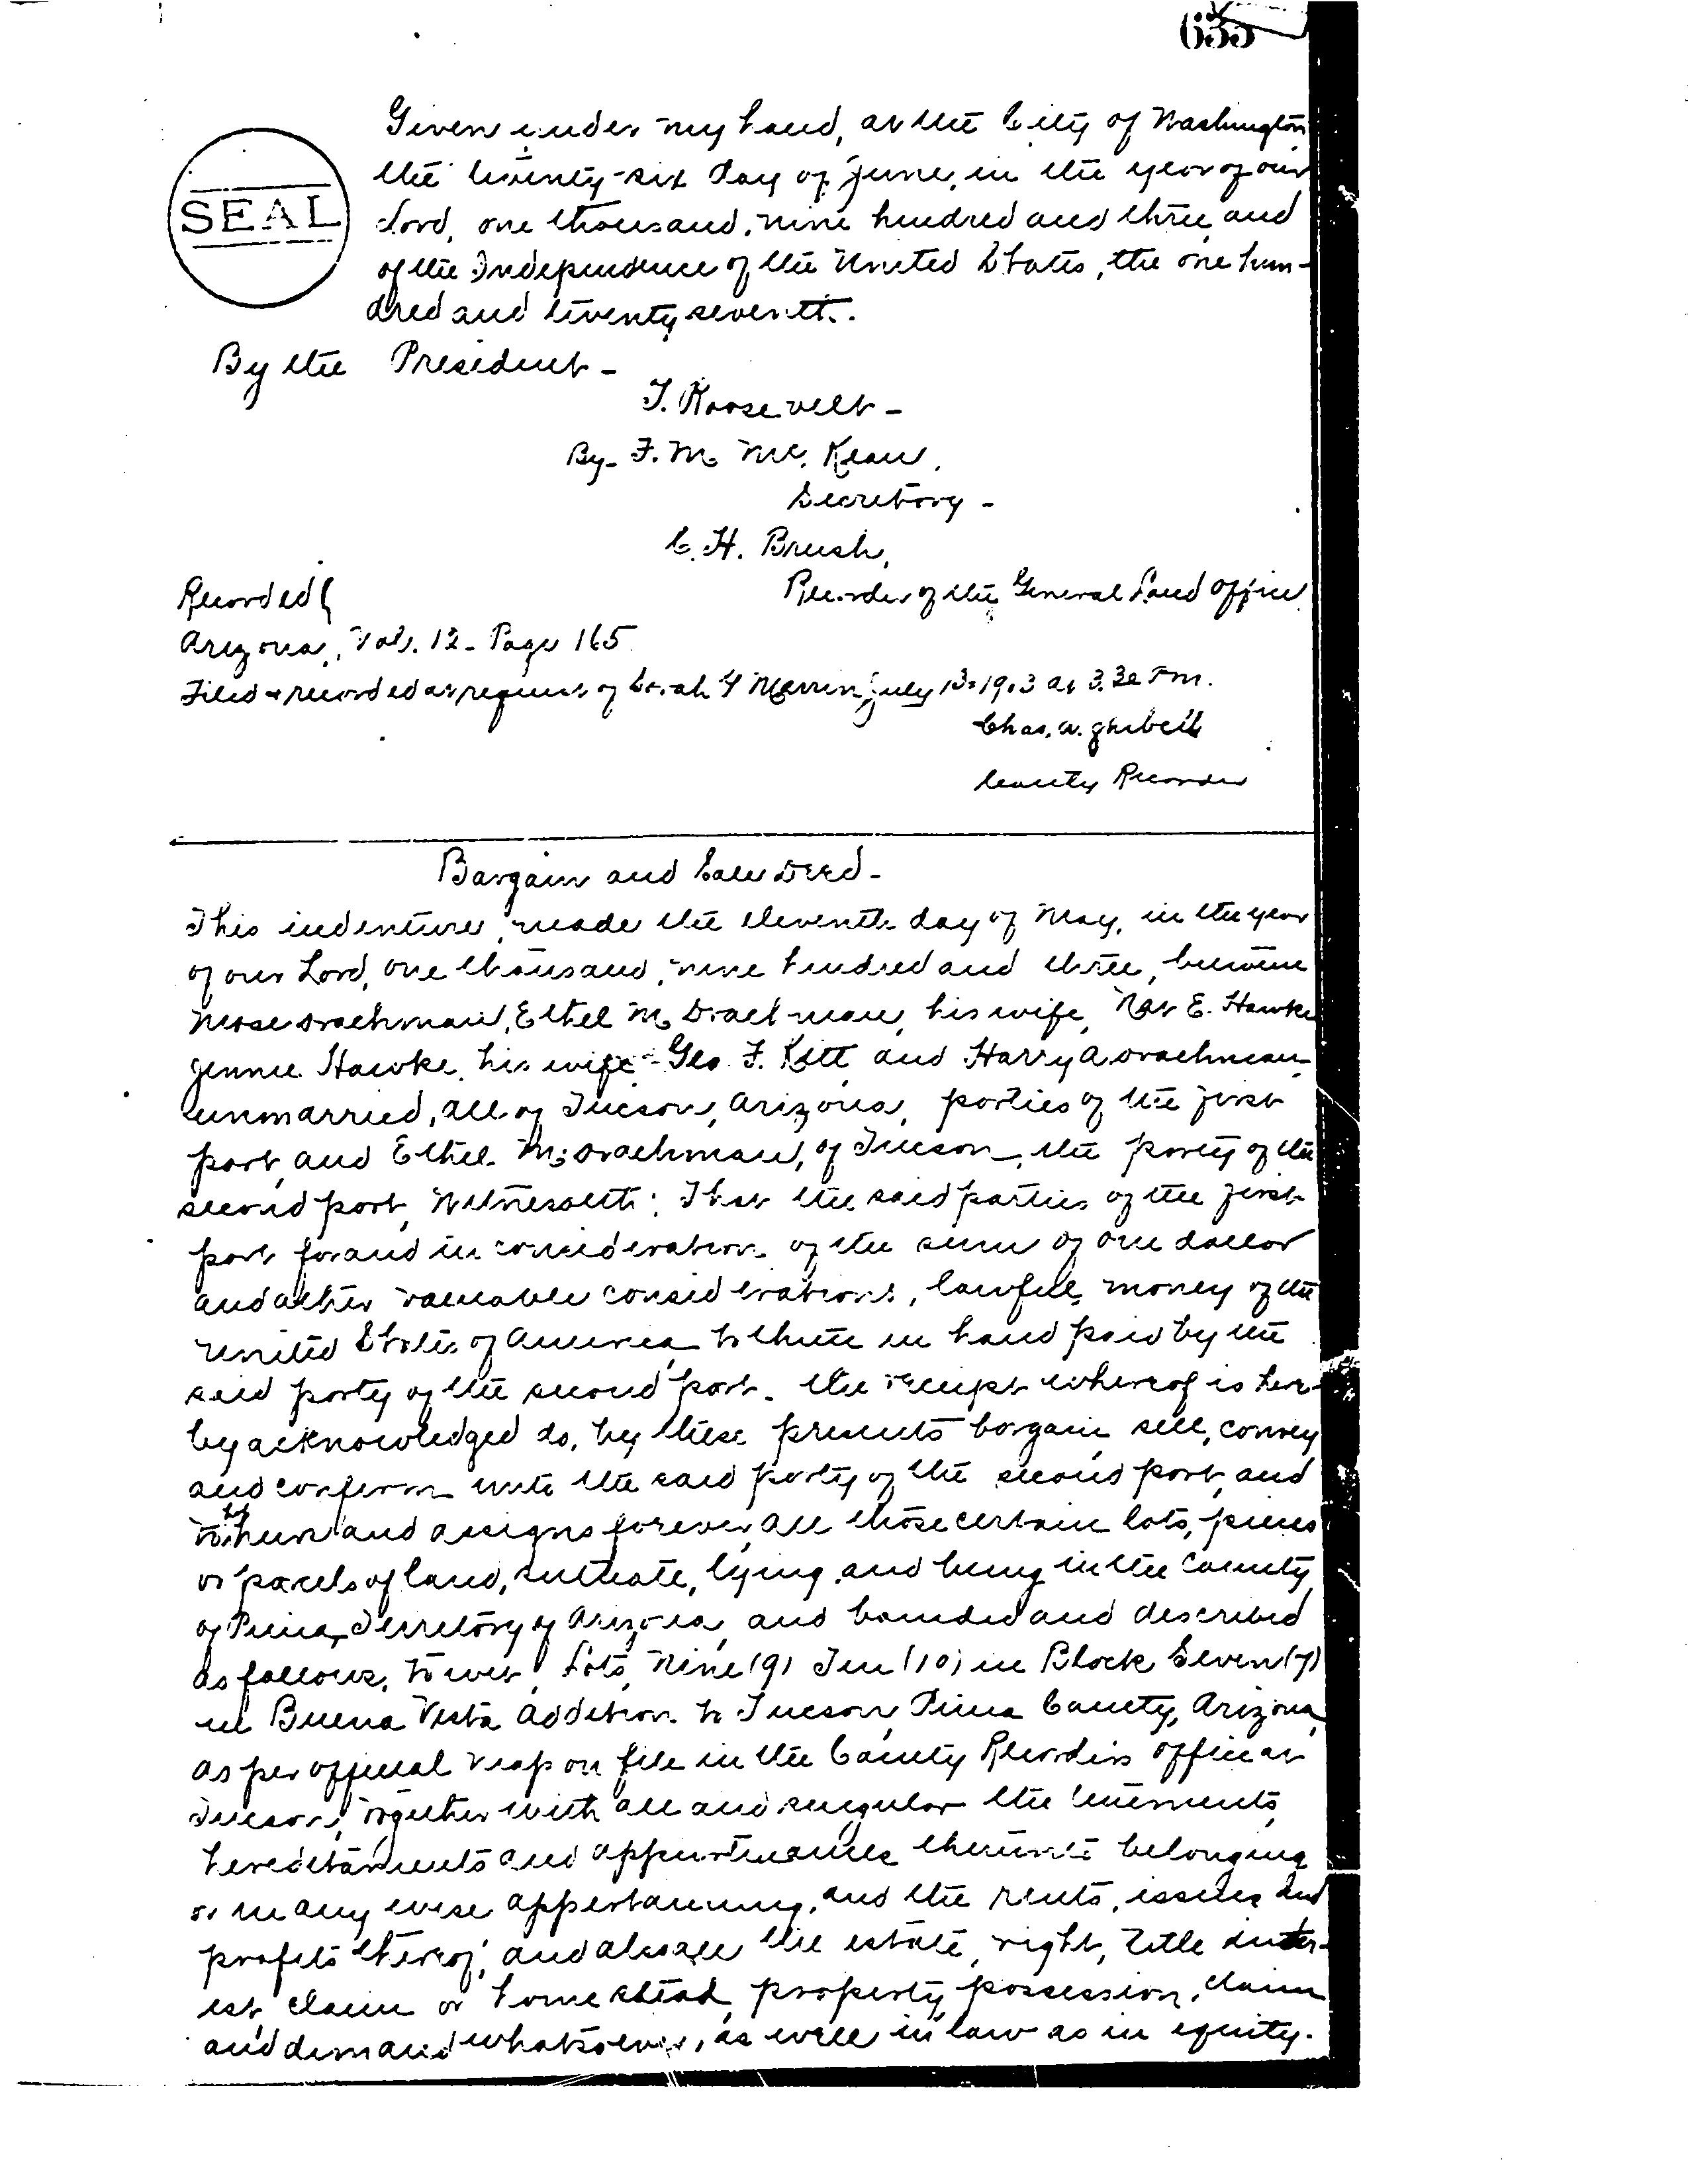 635
Given under my hand, at the City of Washington
the twenty-six day of June, in the year of our
SEAL
Lord, one thousand, nine hundred and three, and
of the Independence of the United States, the one hun-
dred and twenty seventh.
By the President -
T. Roosevelt -
By- F. M. McKean,
Secretary -
C. H. Brush,
Recorded
Recorder of the General Land Office
Arizona, Vol. 12 - Page 165
Filed & recorded at request of July 13, 1903 at 3.30 P m.
Chas. A.
County Recorder
Bargain and Sale Deed -
This indenture, made the eleventh day of May, in the year
of our Lord, one thousand, nine hundred and three, between
Mose Drachman, Ethel M Drachman, his wife, Nat E. Hawke
Jennie Hawke, his wife - Geo. F. Kitt and Harry A Drachman
unmarried, all of Tucson, Arizona, parties of the first
part, and Ethel M. Drachman, of Tucson, the party of the
second part, Witnesseth: That the said parties of the first
part for and in consideration of the sum of one dollar
and other valuable considerations, lawful money of the
United States of America to them in hand paid by the
said party of the second part, the receipt whereof is here-
by acknowledged do, by these presents bargain, sell, convey
and confirm unto the said party of the second part, and
to heirs and assigns forever, all those certain lots, pieces
or parcels of land, situate, lying and being in the County
of Pima, Territory of Arizona, and bounded and described
as follows, to wit, Lots, Nine (9) Ten (10) in Block Seven (7)
in Buena Vista Addition to Tucson, Pima County, Arizona
as per official map on file in the County Recorders office at
Tucson, together with all and singular the tenements,
hereditaments and appurtenances thereunto belonging
or in any wise appertaining, and the rents, issues and
profits thereof, and also all the estate, right, title inter-
est, claim or homestead, property, possession, claim
and demand whatsoever, as well in law as in equity.